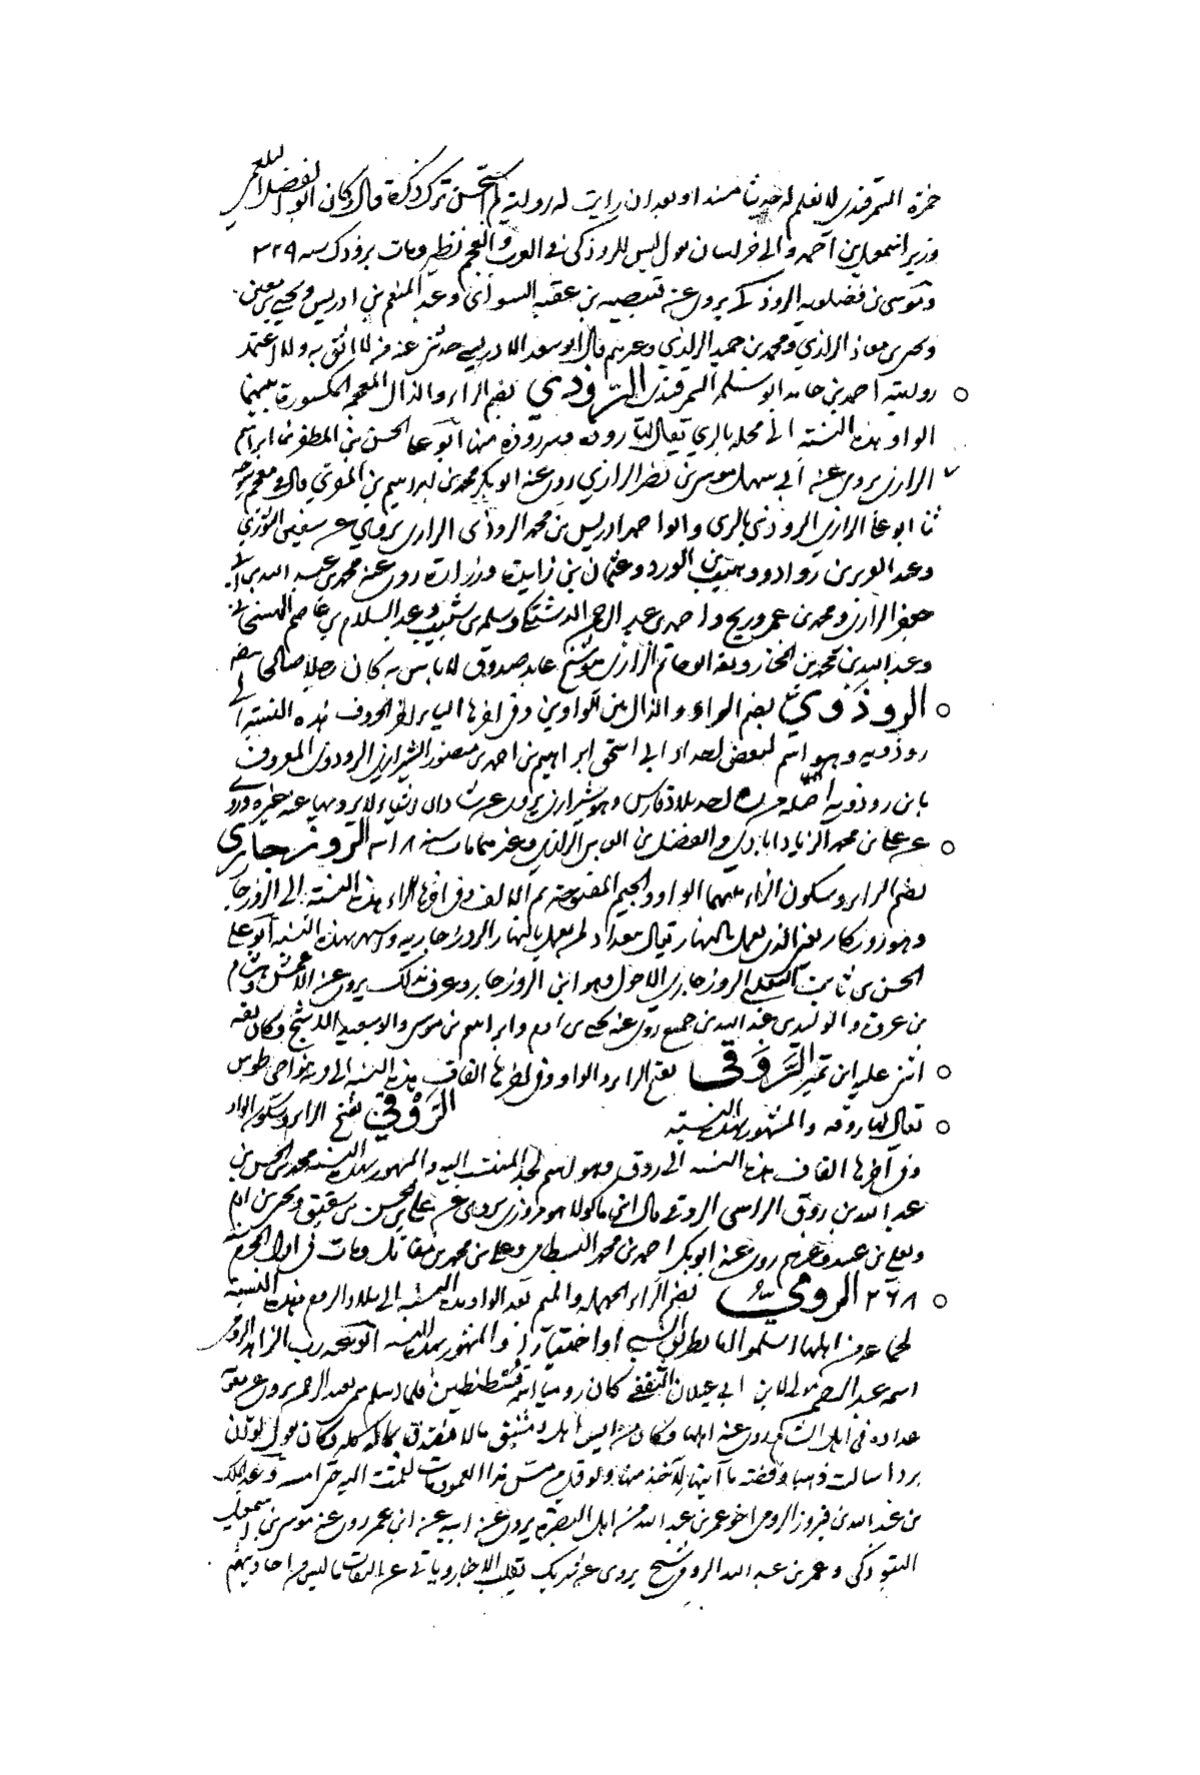 حمزة السمرقندي لا نعلم له حديثا مسندا وبعد ان رايت له رواية لم استحسن ترك ذكره قال وكان ابو الفضل البلعمي
وزير اسمعيل بن احمد والي خراسان يقول ليس للروذكي في العرب والعجم نظير ومات بروذك سنه ٣٢٩
وموسى بن فضلويه الروذكي يروي عن قبيصه بن عقبه السوائي وعبد المنعم بن ادريس ويحيى بن معين
ويحيى بن معاذ الرازي ومحمد بن حميد الرازي وغيرهم قال ابو سعد الادريسي حدثني عنه من لا اثق به ولا اعتمد
روايته احمد بن حامد ابو سلمه السمرقندي الرُّوذي بضم الراء والذال المعجمة المكسورة بينهما
الواو هذه النسبة الى محلة بالري يقال لها روذه وسرروذه منها ابو علي الحسن بن المظفر بن ابراهيم
الرازي يروي عن ابي سهل موسى بن نصر الرازي روى عنه ابو بكر محمد بن ابراهيم بن المقري قال في معجم شيوخه
ثنا ابو علي الرازي الروذي بالري وابو احمد ادريس بن محمد الروذي الرازي يروي عن سفين الثوري
وعبد العزيز بن روادو ووهيب بن الورد وعثمان بن زايدة وزرارة روى عنه محمد بن عبد الله بن ابي
جعفر الرازي ومحمد بن عمرو زنيج واحمد بن عبد الرحمن الدشتكي وسلمه بن شبيب وعبد السلام بن عاصم الهسنجاني
وعبد الله بن محمد بن المختار وثقه ابو حاتم الرازي هو شيخ عابد صدوق لا باس به كان رجلا صالحا ثقه
الروذوي بضم الراء والذال بين الواوين وفي اخرها الياء اخر الحروف هذه النسبة الى
روذويه وهو اسم لبعض اجداد ابي اسحق ابراهيم بن احمد بن منصور الشيرازي الروذوي المعروف
بابن روذويه اصله من احد بلاد فارس وهو شيرازي يروي عن شاذان اشياء لا يرويها عنه غيره وروى
عن علي بن محمد الزياداباذي والفضل بن العباس الرازي وغيرهما مات سنه ٣١٨ الروزجاري
بضم الراء وسكون الزاء بينهما الواو والجيم المفتوحة ثم الالف وفي اخرها الراء هذه النسبة الى الروزجار
وهو روزكار يعني الذي يعمل بالنهار يقال ببغداد لمن يعمل بالنهار الروزجاريه واشتهر بهذه النسبة ابو علي
الحسن بن ثابت التغلبي الروزجاري الاحول وهو ابن الروزجار وعرف بذلك يروي عن الاعمش وهشام
بن عروة والوليد بن عبد الله بن جميع روى عنه يحيى بن ادم وابراهيم بن موسى وابو سعيد الاشج وكان ثقه
اثنى عليه ابن نمير الرَّوَقي بفتح الراء والواو وفي اخرها القاف هذه النسبة الى قرية بنواحي طوس
يقال لها روقه والمشهور بهذه النسبة الرَّوْقي بفتح الراء وسكون الواو
وفي آخرها القاف هذه النسبة الى روق وهو اسم لجد المنتسب اليه والمشهور بهذه النسبة محمد بن الحسن بن
عبد الله بن روق الراسبي الروقي قال ابن ماكولا هو مروزي يروي عن علي بن الحسن بن شقيق ويحيى بن ادم
ويعلي بن عبيد وغيرهم روى عنه ابو بكر احمد بن محمد البسطامي وعلي بن محمد بن مقاتل ومات في اول المحرم سنة
٢٦٨ الرومي بضم الراء المهملة والميم بعد الواو هذه النسبة الى بلاد الروم فهذه النسبة
لجماعة من اهلها اسلموا اما بطريق السبي او اختيارا والمشهور بهذه النسبة ابو عبد رب الزاهد الرومي
اسمه عبد الرحمن مولى لابن ابي غيلان الثقفي كان روميا اسمه قسطنطين فلما اسلم سمي بعبد الرحمن يروي عن معوية
عداده في اهل الشام روى عنه اهلها وكان من ايسر اهل دمشق مالا فتصدق بماله كله وكان يقول لو ان
بردا سالت ذهبا وفضة ما اتيتها لآخذ منها ولو قيل من مس هذا العمود مات لقمت اليه حتى امسه وعبد الملك
بن عبد الله بن فيروز الرومي اخو عمر بن عبد الله من اهل البصرة يروي عن ابيه عن ابن عمر روى عنه موسى بن اسمعيل
التبوذكي وعمر بن عبد الله الرومي شيخ يروي عن شريك يقلب الاخبار وياتي عن الثقات ما ليس من احاديثهم